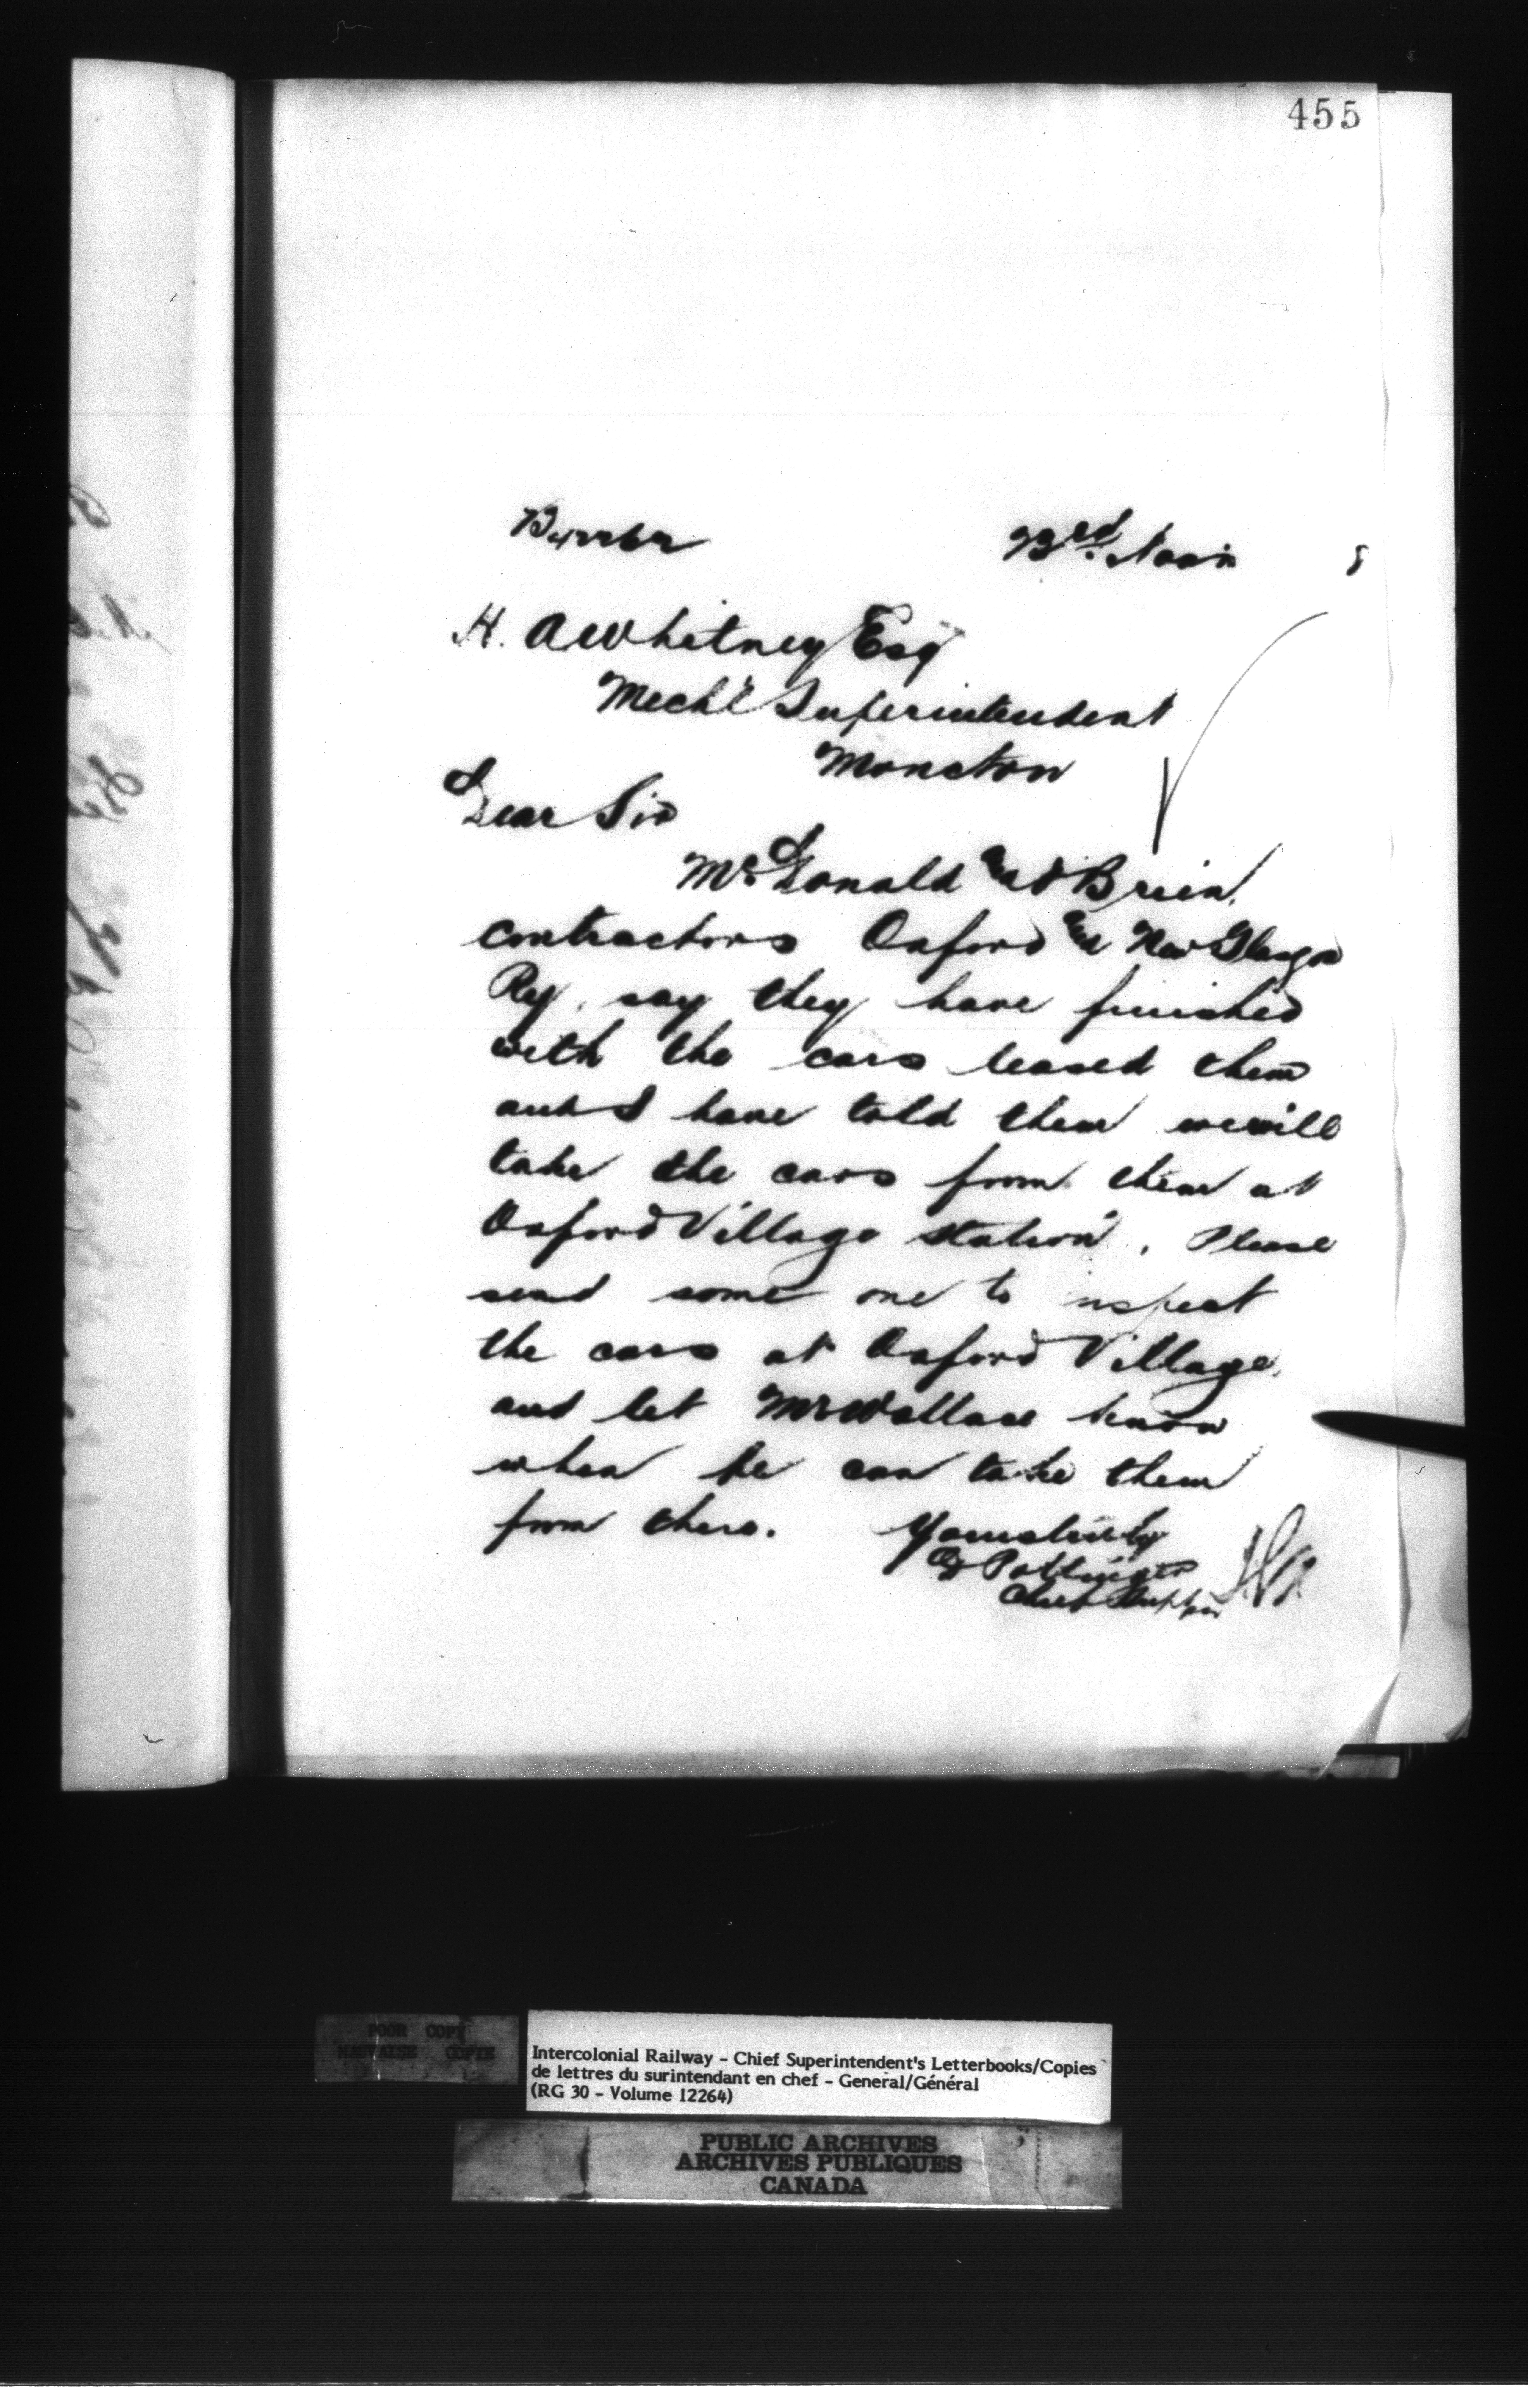 455
23rd. Nov
H. A Whitney Esq
Mechl Superintendent
Moncton
Dear Sir
McDonald and O'Brien,
contractors Oxford and New Glasgow
Ry, say they have finished
with the cars leased them
and I have told them we will
take the cars from them at
Oxford Village station. Please
send some one to inspect
the cars at Oxford Village,
and let Mr Wallace know
when he can take them
from there. Yours truly
D Pottinger
Chief Supt
POOR COPY
MAUVAISE COPIE
Intercolonial Railway - Chief Superintendent's Letterbooks/Copies
de lettres du surintendant en chef - General/Général
(RG 30 - Volume 12264)
PUBLIC ARCHIVES
ARCHIVES PUBLIQUES
CANADA